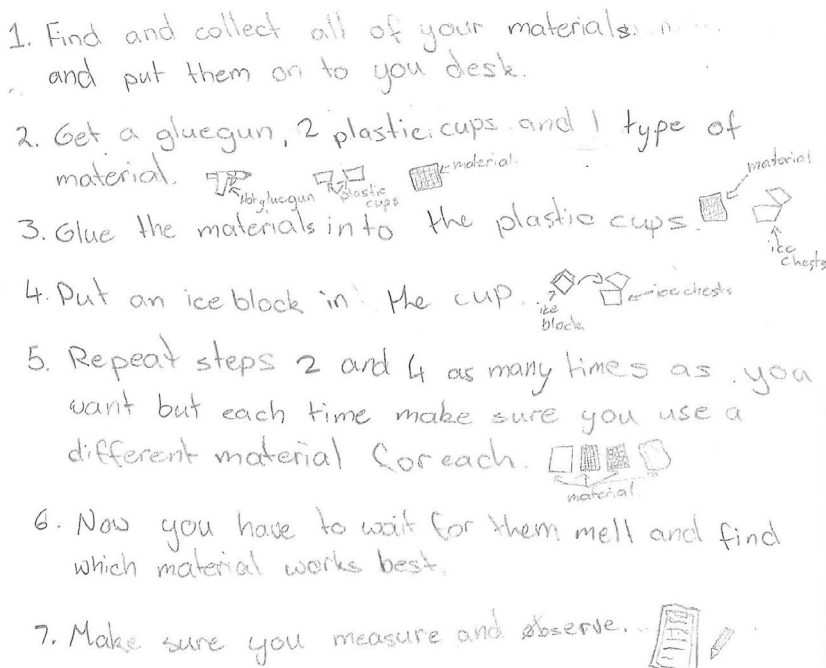 1. Find and collect all of your materials.
and put them on to you desk.
2. Get a gluegun, 2 plastic cups and 1 type of
material.
Hot gluegun
plastic
cups
material.
3. Glue the materials into the plastic cups.
material
ice
chests
4. Put an ice block in the cup.
ice
block
ice chests
5. Repeat steps 2 and 4 as many times as you
want but each time make sure you use a
different material for each.
material
6. Now you have to wait for them melt and find
which material works best.
7. Make sure you measure and observe.